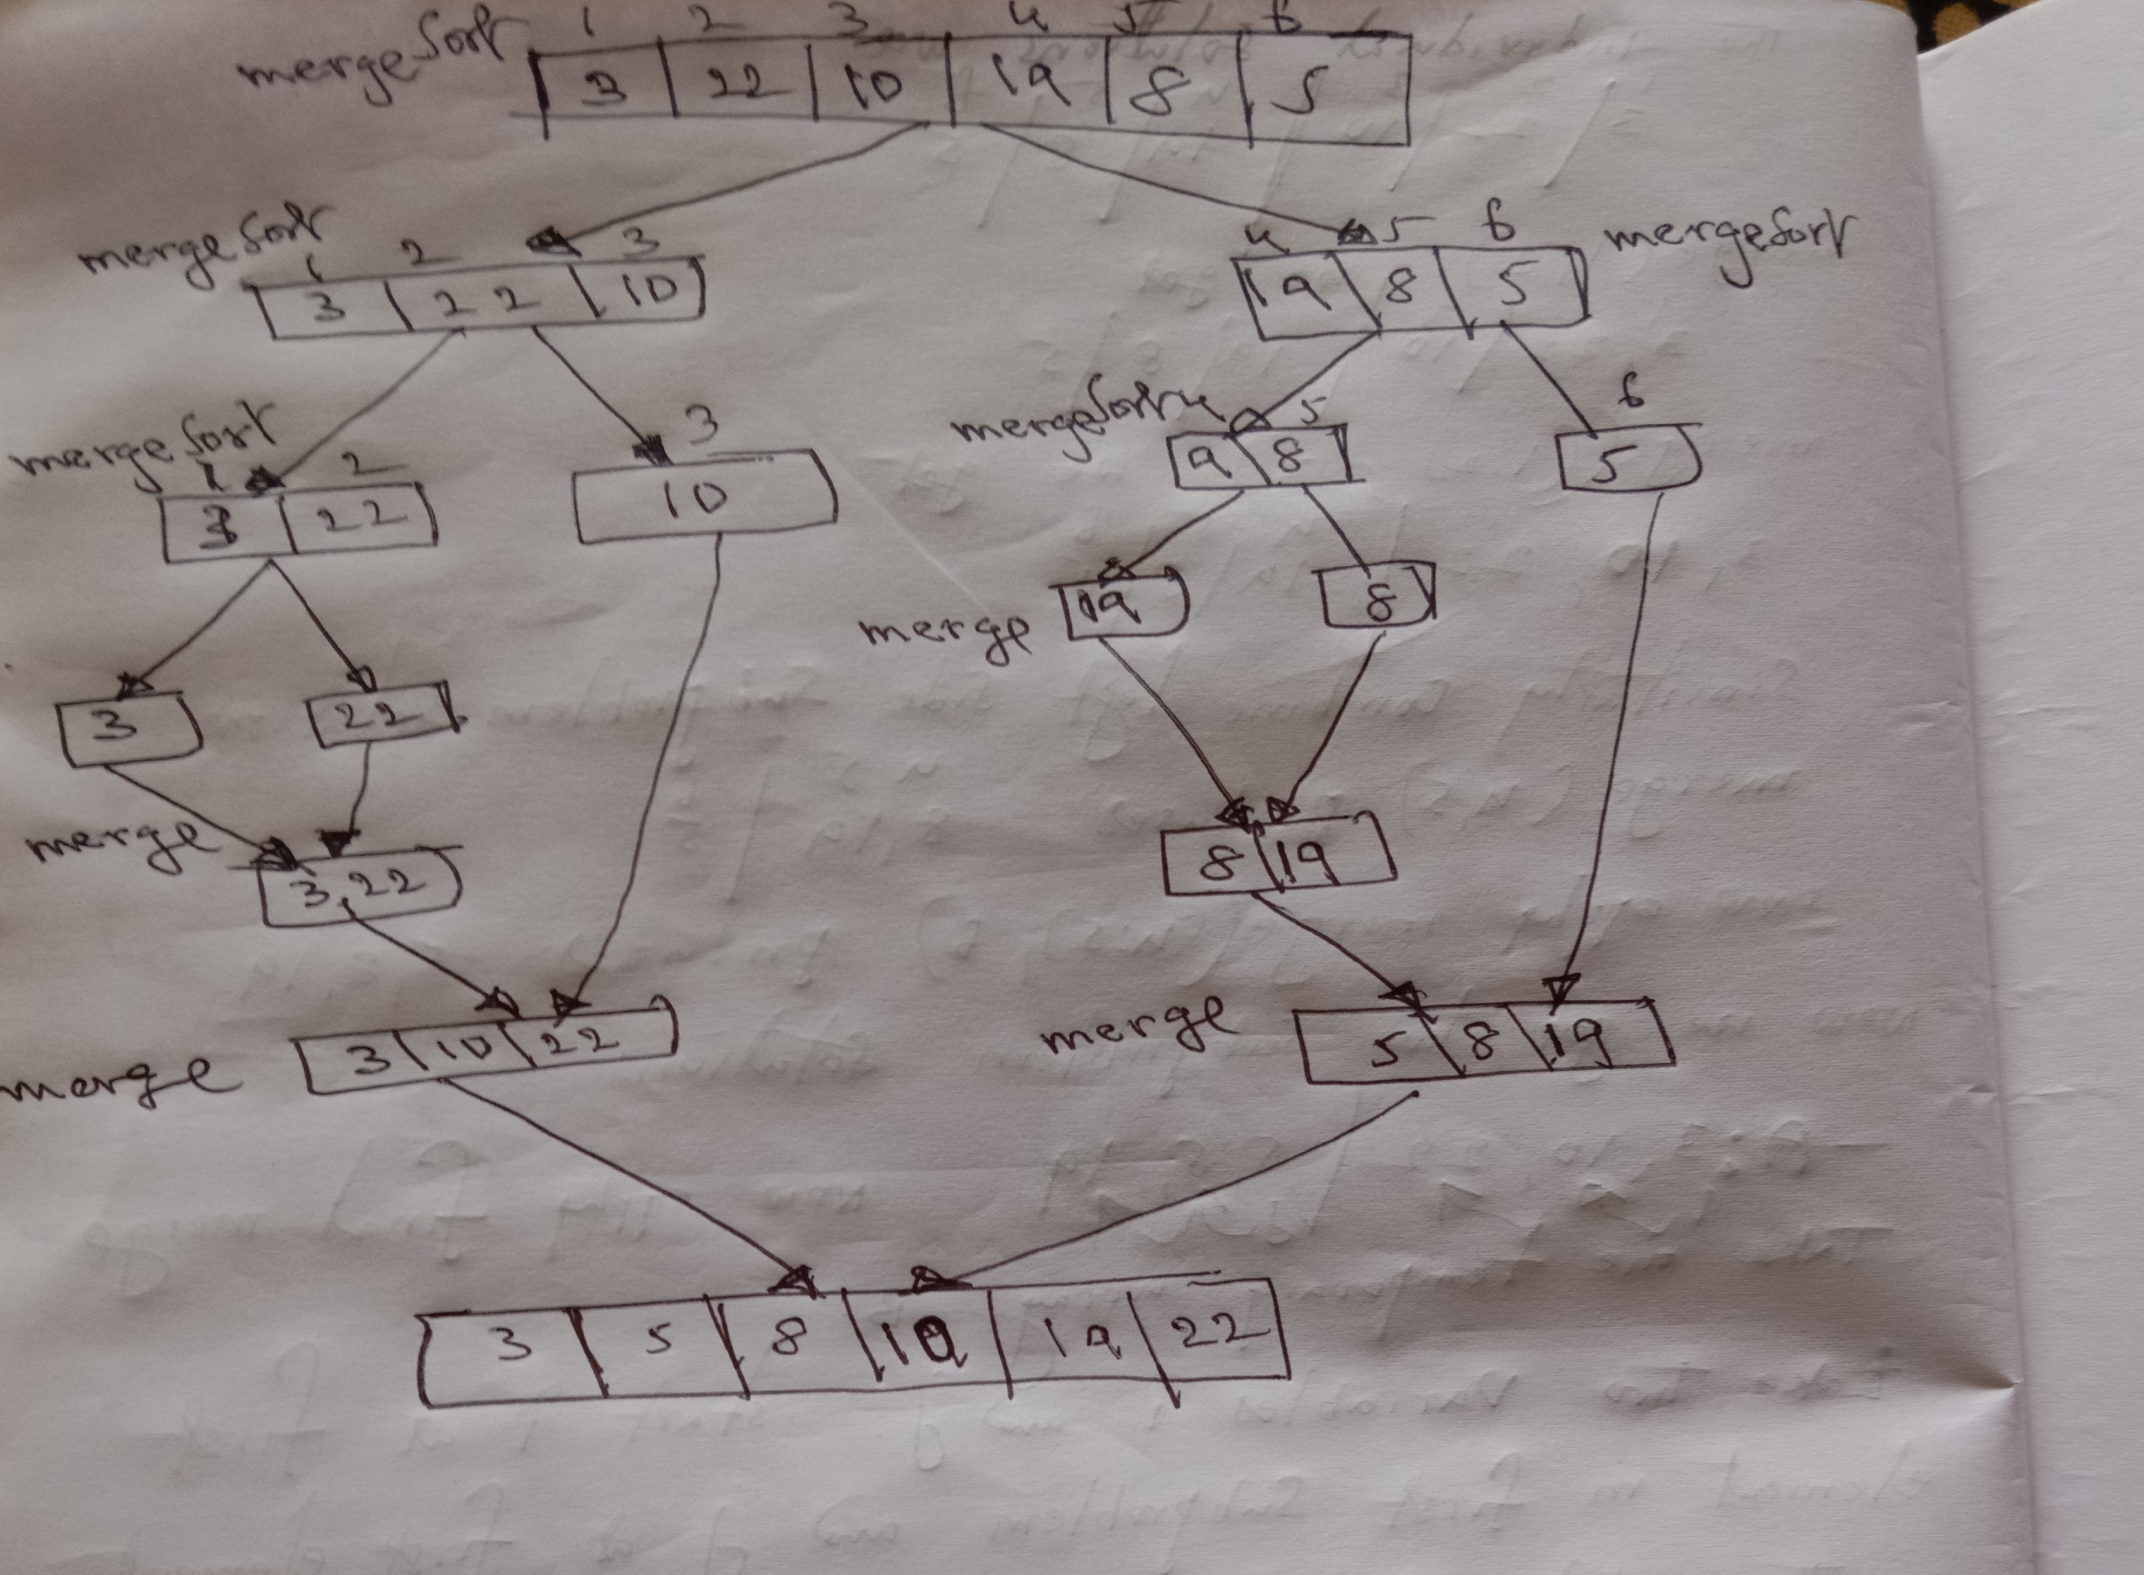 1 2 3 4 5 6
mergeSort 3 22 10 19 8 5
mergeSort 1 2 3
3 22 10
4 5 6 mergeSort
19 8 5
mergeSort 1 2
3 22
3
10
mergeSort 4 5
9 8
6
5
merge 19 8
3 22
merge
3,22
8 19
merge 3 10 22
merge 5 8 19
3 5 8 10 19 22